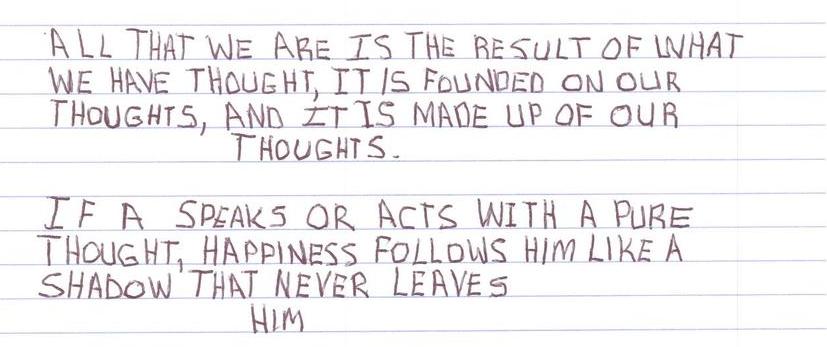 ALL THAT WE ARE IS THE RESULT OF WHAT
WE HAVE THOUGHT, IT IS FOUNDED ON OUR
THOUGHTS, AND IT IS MADE UP OF OUR
THOUGHTS.
IF A SPEAKS OR ACTS WITH A PURE
THOUGHT, HAPPINESS FOLLOWS HIM LIKE A
SHADOW THAT NEVER LEAVES
HIM